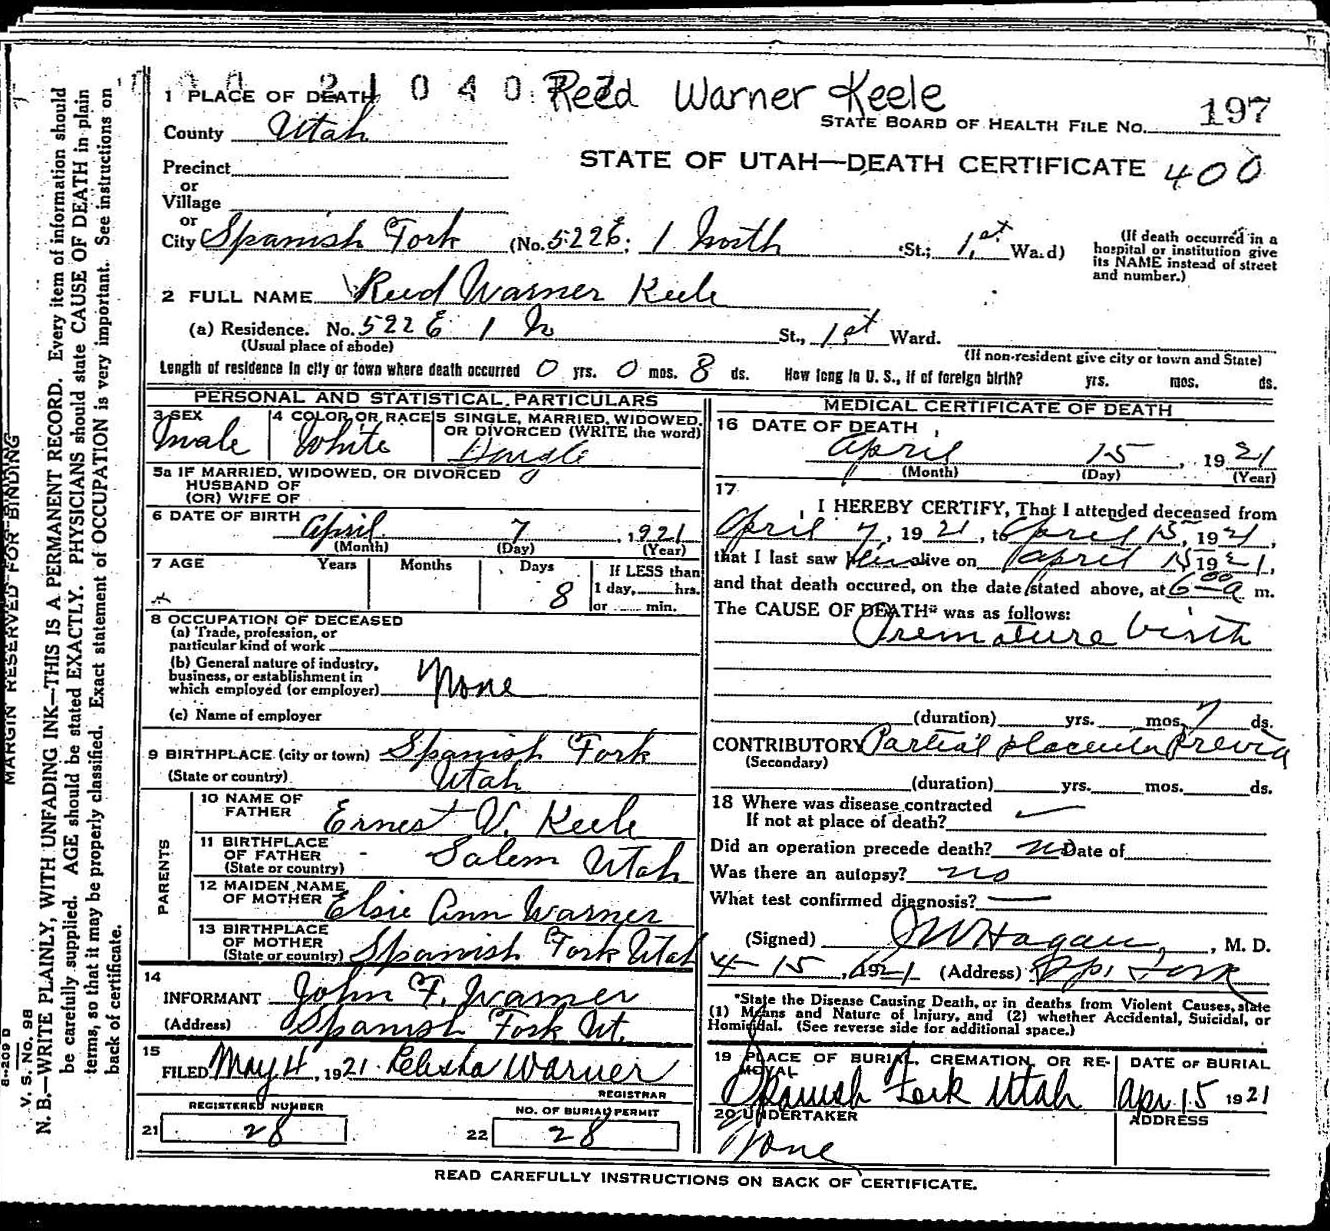 21040
Reed Warner Keele
1 PLACE OF DEATH
197
STATE BOARD OF HEALTH FILE No.
County Utah
STATE OF UTAH—DEATH CERTIFICATE 400
Precinct
or
Village
or
City Spanish Fork (No. 522 E; 1 North St.; 1st Ward)
(If death occurred in a hospital or institution give its NAME instead of street and number.)
2 FULL NAME Reed Warner Keele
(a) Residence. No. 522 E 1 N St., 1st Ward.
(Usual place of abode) (If non-resident give city or town and State)
Length of residence in city or town where death occurred 0 yrs. 0 mos. 8 ds. How long in U. S., if of foreign birth? yrs. mos. ds.
PERSONAL AND STATISTICAL PARTICULARS
3 SEX 4 COLOR OR RACE 5 SINGLE, MARRIED, WIDOWED,
OR DIVORCED (WRITE the word)
male White Single
5a IF MARRIED, WIDOWED, OR DIVORCED
HUSBAND OF
(OR) WIFE OF
6 DATE OF BIRTH April 7, 1921
(Month) (Day) (Year)
7 AGE Years Months Days If LESS than
1 day, hrs.
8 or min.
8 OCCUPATION OF DECEASED
(a) Trade, profession, or
particular kind of work
(b) General nature of industry,
business, or establishment in
which employed (or employer) None
(c) Name of employer
9 BIRTHPLACE (city or town) Spanish Fork
(State or country) Utah
PARENTS
10 NAME OF
FATHER Ernest V. Keele
11 BIRTHPLACE
OF FATHER - Salem Utah
(State or country)
12 MAIDEN NAME
OF MOTHER Elsie Ann Warner
13 BIRTHPLACE
OF MOTHER
(State or country) Spanish Fork Utah
14
INFORMANT John F. Warner
(Address) Spanish Fork Ut.
15
FILED May 4, 1921 Elisha Warner
REGISTRAR
REGISTERED NUMBER NO. OF BURIAL PERMIT
21 28 22 28
MEDICAL CERTIFICATE OF DEATH
16 DATE OF DEATH
April 15, 1921
(Month) (Day) (Year)
17
I HEREBY CERTIFY, That I attended deceased from
April 7, 1921, to April 15, 1921,
that I last saw him alive on April 15 1921,
and that death occured, on the date stated above, at 6 00 a m.
The CAUSE OF DEATH* was as follows:
Premature birth
(duration) yrs. mos. 7 ds.
CONTRIBUTORY Partial placenta Previa
(Secondary)
(duration) yrs. mos. ds.
18 Where was disease contracted
If not at place of death?
Did an operation precede death? no Date of
Was there an autopsy? no
What test confirmed diagnosis?
(Signed) J W Hagan, M. D.
4-15, 1921 (Address) Sp. Fork
*State the Disease Causing Death, or in deaths from Violent Causes, state
(1) Means and Nature of Injury, and (2) whether Accidental, Suicidal, or
Homicidal. (See reverse side for additional space.)
19 PLACE OF BURIAL, CREMATION, OR RE- DATE OF BURIAL
MOVAL
Spanish Fork Utah Apr. 15 1921
20 UNDERTAKER ADDRESS
None
READ CAREFULLY INSTRUCTIONS ON BACK OF CERTIFICATE.
MARGIN RESERVED FOR BINDING
V. S. No. 98
N. B.—WRITE PLAINLY, WITH UNFADING INK—THIS IS A PERMANENT RECORD. Every item of information should
be carefully supplied. AGE should be stated EXACTLY. PHYSICIANS should state CAUSE OF DEATH in plain
terms, so that it may be properly classified. Exact statement of OCCUPATION is very important. See instructions on
back of certificate.